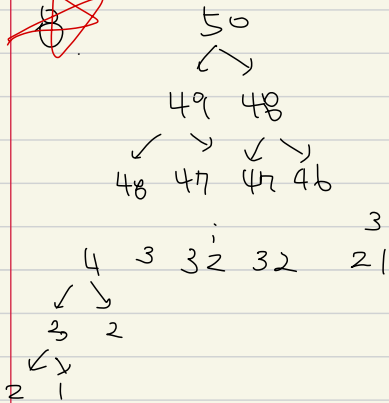 50
49 48
48 47 47 46
3
4 3 32 32 21
3 2
2 1